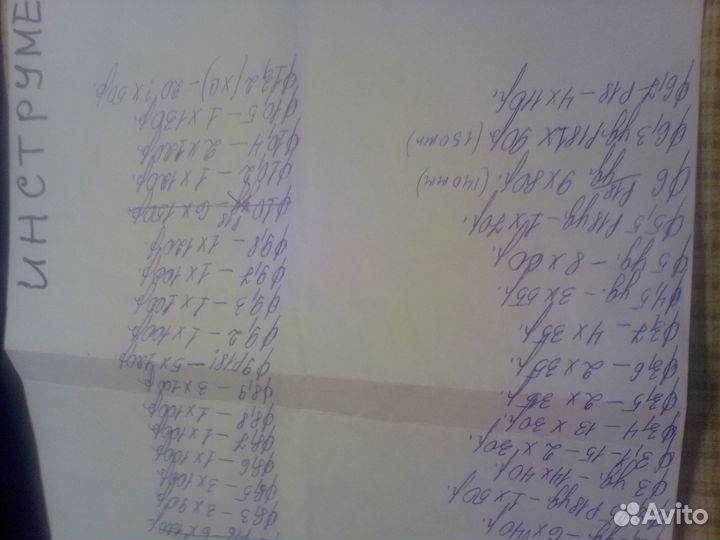 ИНСТРУМЕ
уд. – 6 x 40р.
P18 уд. – 1 x 50р.
ф3 уд. – 14 x 40р.
ф3,1 – 15 – 2 x 30р.
ф3,4 – 13 x 30р.
ф3,5 – 2 x 35р.
ф3,6 – 2 x 35р.
ф3,7 – 4 x 35р.
ф4,5 уд. – 3 x 55р.
ф5 уд. – 8 x 60р.
ф5,5 P18 уд – 1 x 70р.
ф6 P18 уд. 9 x 80р. (140 мм)
ф6,3 уд. P18 1 x 90р (150 мм)
ф6,7 P18 – 4 x 110р.
ф8,3 – 3 x 90р
ф8,5 – 3 x 100р
ф8,6 – 1 x 100р
ф8,7 – 1 x 100р
ф8,8 – 1 x 100р
ф8,9 – 3 x 100р
ф9 P18 – 5 x 120р.
ф9,2 – 1 x 100р.
ф9,3 – 1 x 100р
ф9,7 – 1 x 100р.
ф9,8 – 1 x 120р
ф10 P18 – 6 x 150р
ф10,2 – 1 x 120р.
ф10,4 – 2 x 120р.
ф10,5 – 1 x 130р
ф13,2 (x0) – 20 x 50р.
Avito